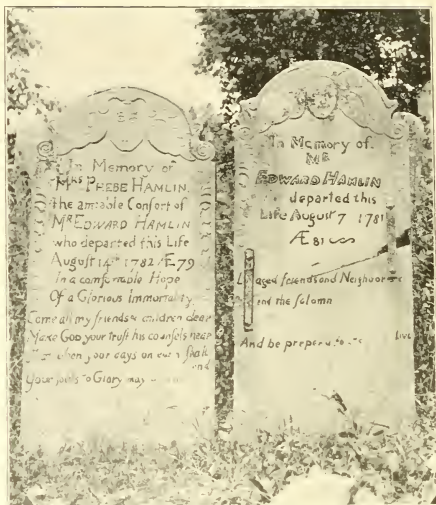 In Memory of
Mrs PHEBE HAMLIN,
the amiable Consort of
Mr EDWARD HAMLIN
who departed this Life
August 14th 1782 Æ 79
In a comfortable Hope
Of a Glorious Immortality
Come all my friends & children dear
Make GOD your trust his counsels hear
when your days on earth shall
end
Your souls to Glory may
In Memory of
Mr
EDWARD HAMLIN
departed this
Life August 7 1781
Æ 81
aged friends and Neighbour
end the solomn
And be prepar
Live